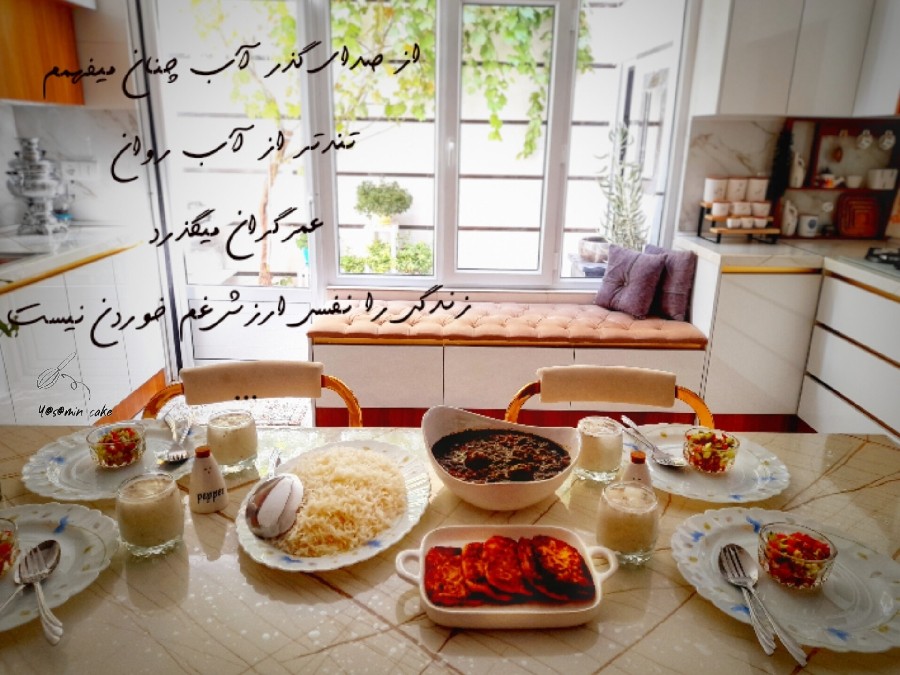 از صدای گذر آب چنان میفهمم
تندتر از آب روان
عمر گران میگذرد
زندگی را نفسی ارزش غم خوردن نیست
...
y@s@min cake
pepper